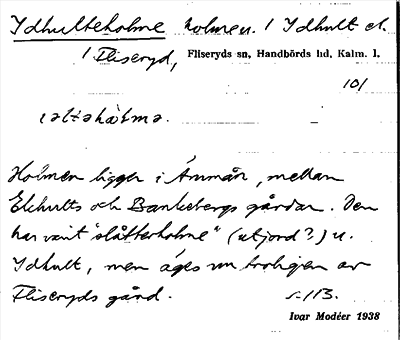 Idhulteholme holmen. 1 Idhult el.
1 Fliseryd, Fliseryds sn, Handbörds hd, Kalm. l.
101
ịəl:təhὰlmə.
Holmen ligger i Ämmån, mellan
Ekhults och Bankebergs gårdar. Den
har varit "slåtterholme" (utjord?) u.
Idhult, men äges nu troligen av
Fliseryds gård. s. 113.
Ivar Modéer 1938